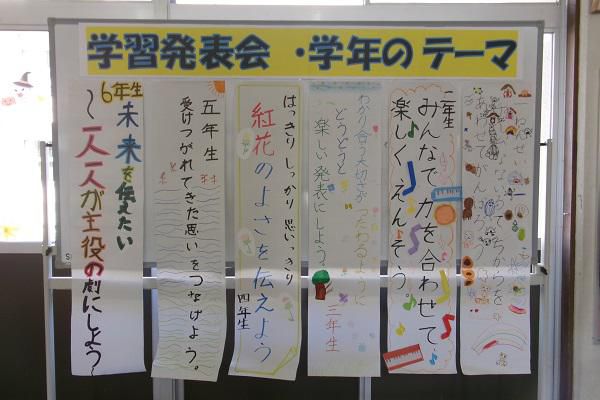 学習発表会 ・学年のテーマ
ちからを
あわせてがんばろう
二年生
みんなで力を合わせて
楽しくえんそう。
わかり合う大切さがつたわるように
どうどうと
楽しい発表にしよう。
三年生
はっきりしっかり思いっきり
紅花のよさを伝えよう
四年生
五年生
受けつがれてきた思いをつなげよう。
6年生
未来を伝えたい
〜一人一人が主役の劇にしよう〜